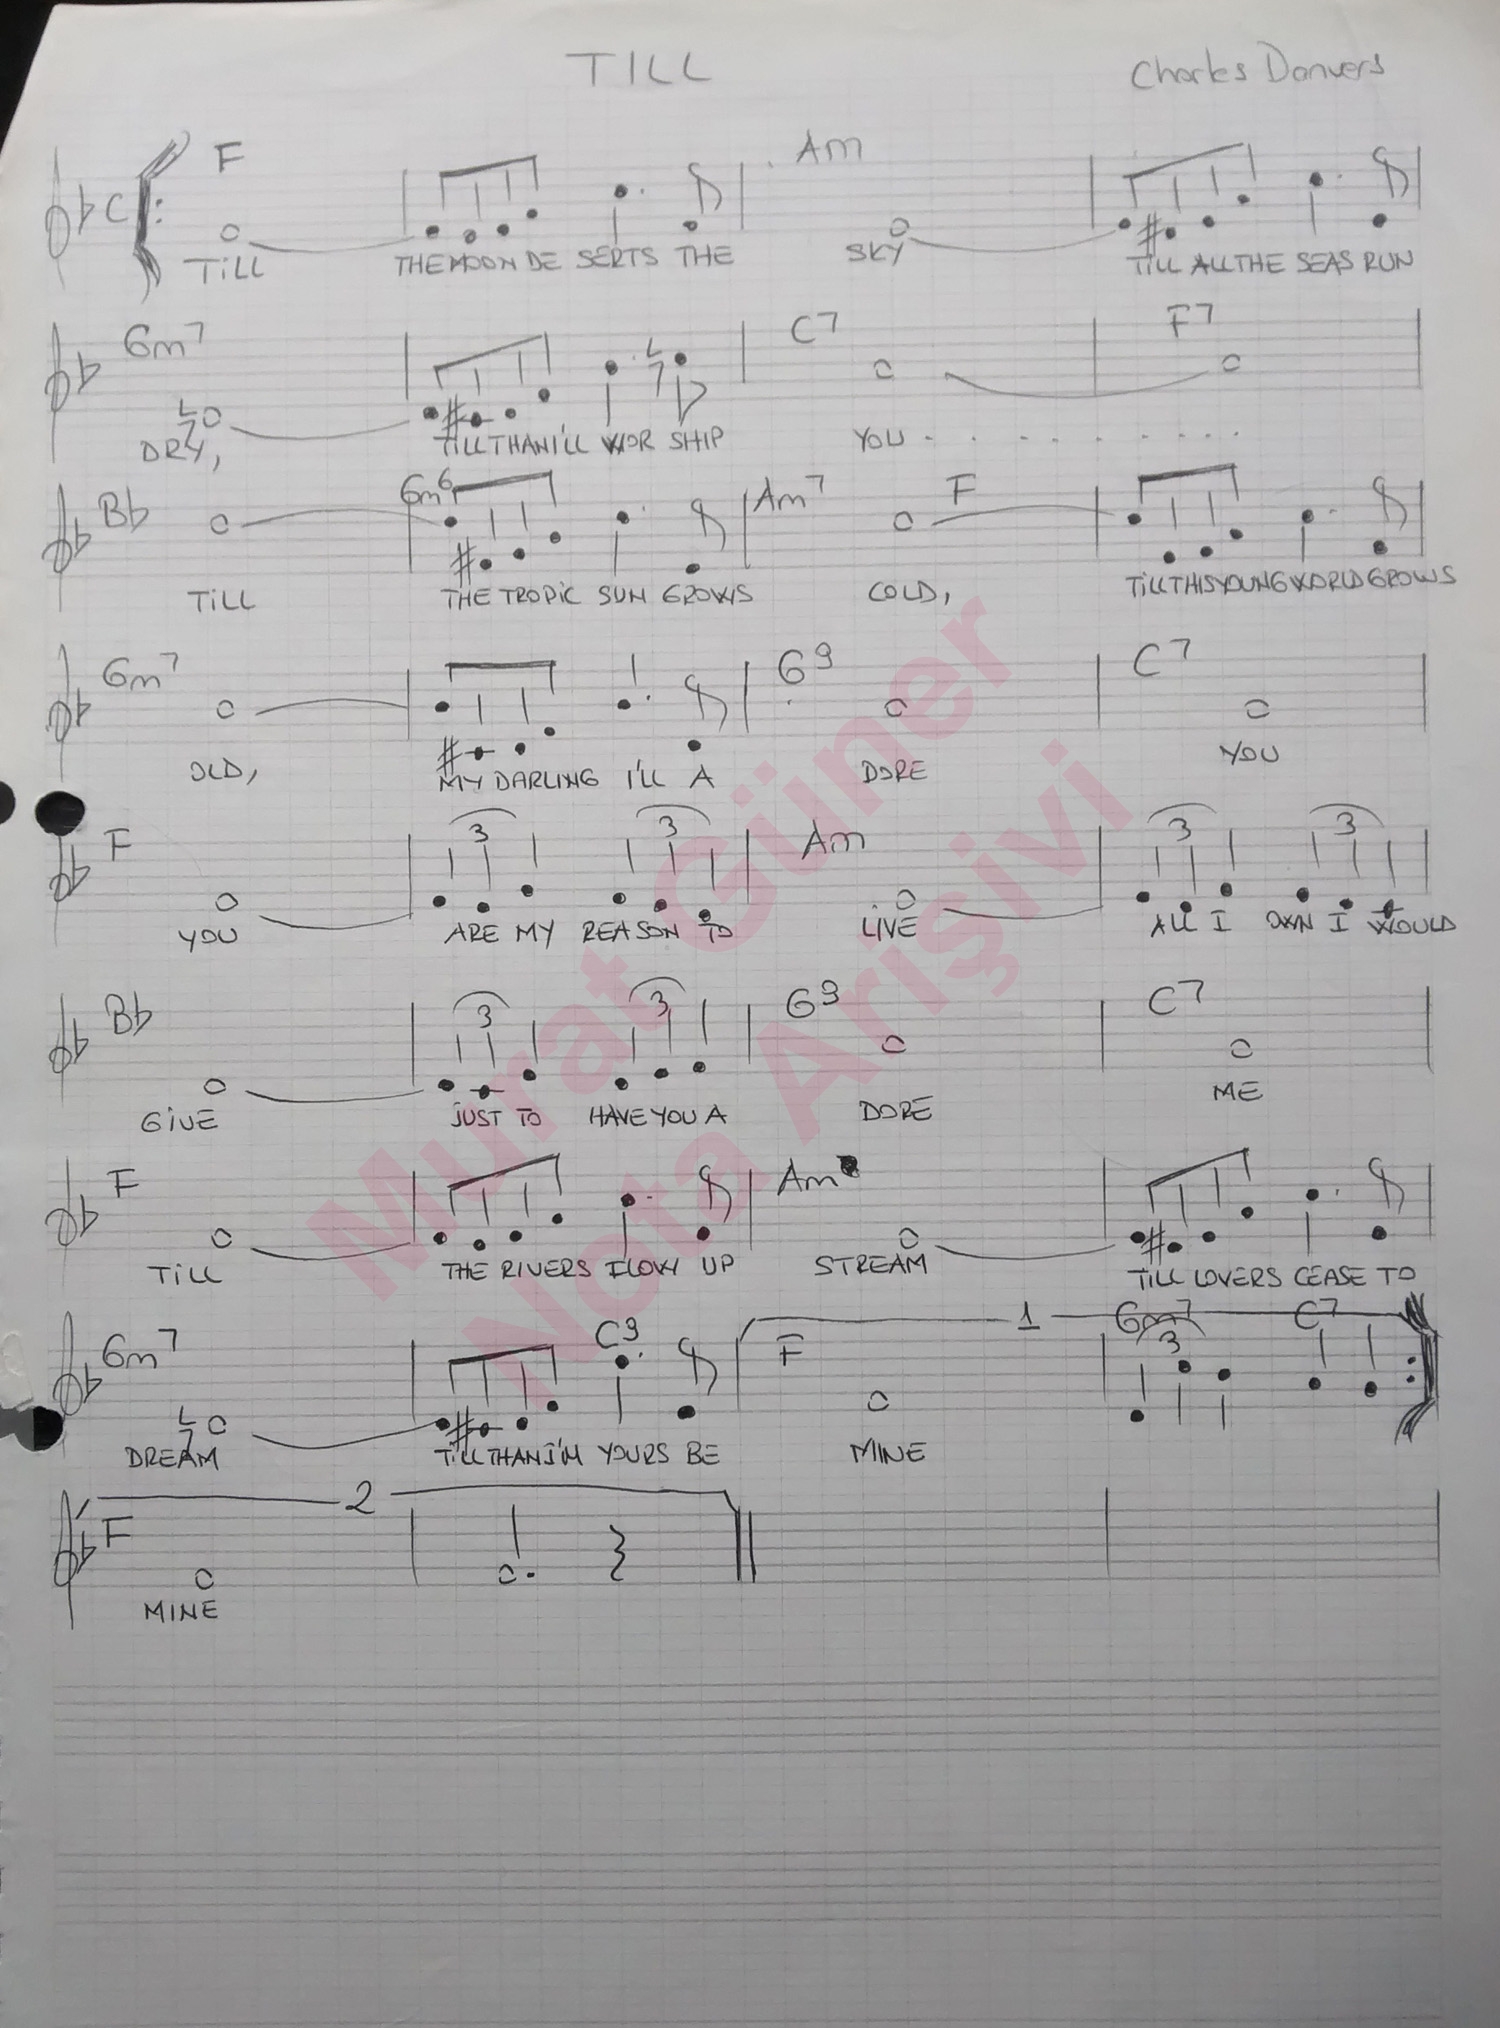 TILL
Charles Danvers
F Am
TiLL THE MOON DE SERTS THE SKY TiLL ALL THE SEAS RUN
Gm7 C7 F7
DRY, TILL THAN I'LL WOR SHIP YOU - . . . . . . . .
Bb Gm6 Am7 F
TiLL THE TROPiC SUN GROWS COLD, TiLL THIS YOUNG WORLD GROWS
Gm7 G9 C7
OLD, MY DARLING I'LL A DORE YOU
F 3 3 Am 3 3
YOU ARE MY REASON TO LIVE ALL I OWN I WOULD
Bb 3 3 G9 C7
GiVE JUST TO HAVE YOU A DORE ME
F Am
TiLL THE RIVERS FLOW UP STREAM TiLL LOVERS CEASE TO
1
Gm7 C9 F Gm7 3 C7
DREAM TiLL THAN I'M YOURS BE MINE
2
F
MINE
Murat Güner
Nota Arişivi